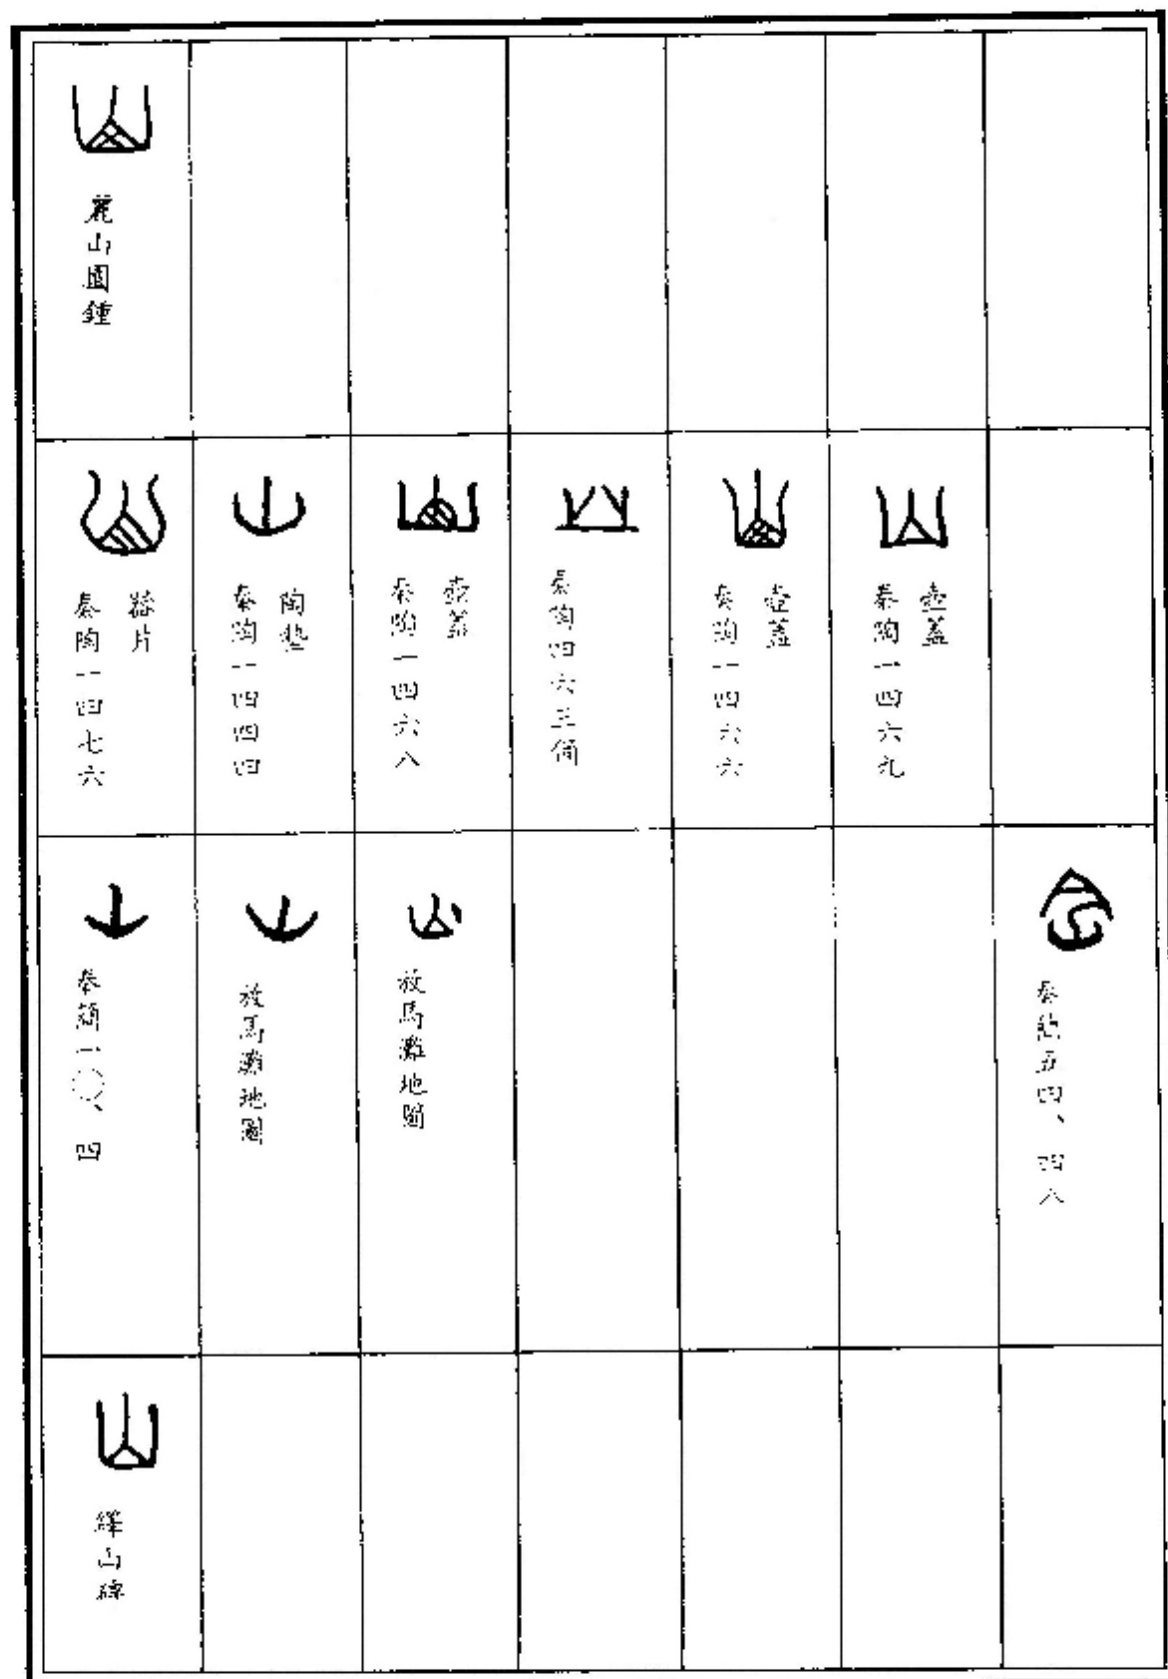 山
麗山園鍾
山
器片
秦陶一四七六
山
陶墊
秦陶一四四四
山
壺蓋
秦陶一四六八
山
秦陶四六三俑
山
壺蓋
秦陶一四六六
山
壺蓋
秦陶一四六九
山
秦簡一〇、四
山
放馬灘地圖
山
放馬灘地圖
秦簡五四、四八
山
繹山碑